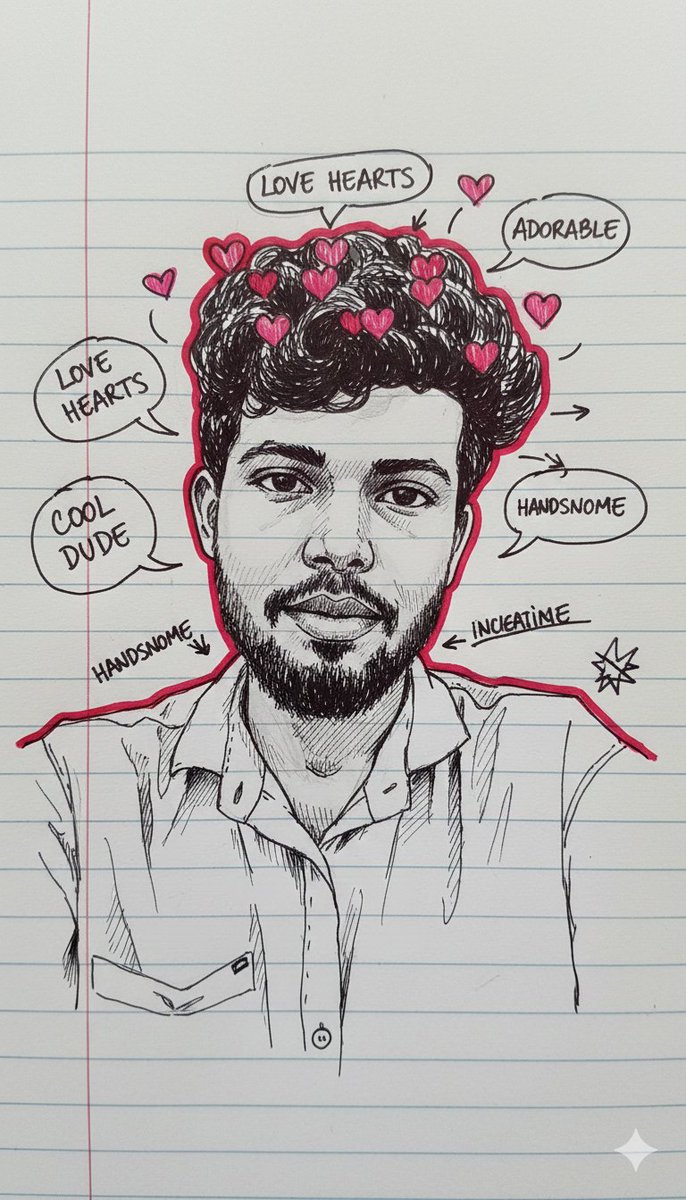 LOVE HEARTS
ADORABLE
LOVE
HEARTS
COOL
DUDE
HANDSNOME
HANDSNOME
INCUEATiME